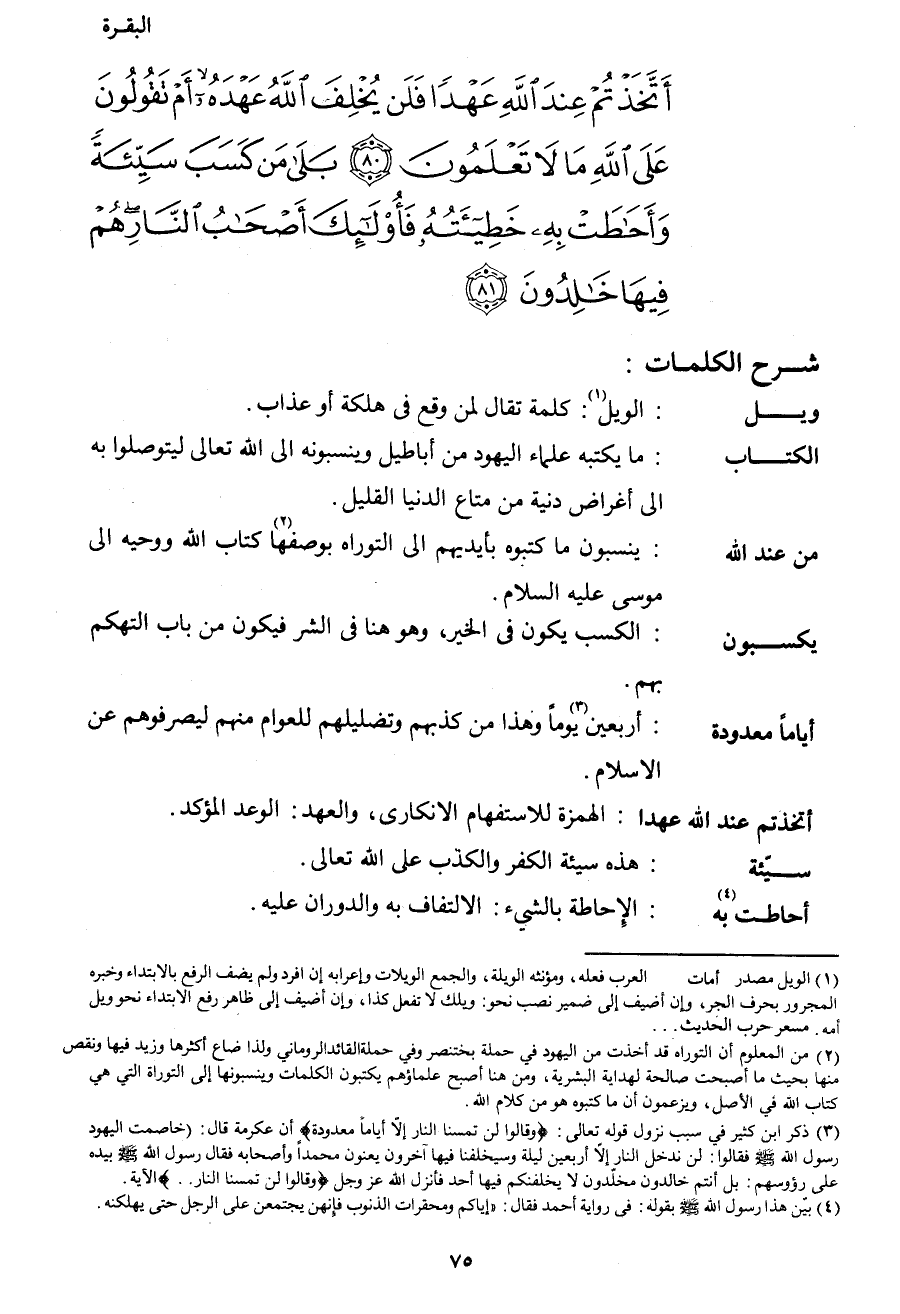 البقـرة
أَتَّخَذْتُمْ عِندَ ٱللَّهِ عَهْدًا فَلَن يُخْلِفَ ٱللَّهُ عَهْدَهُۥٓ ۖ أَمْ تَقُولُونَ
عَلَى ٱللَّهِ مَا لَا تَعْلَمُونَ ﴿٨٠﴾ بَلَىٰ مَن كَسَبَ سَيِّئَةً
وَأَحَٰطَتْ بِهِۦ خَطِيٓـَٔتُهُۥ فَأُو۟لَٰٓئِكَ أَصْحَٰبُ ٱلنَّارِ ۖ هُمْ
فِيهَا خَٰلِدُونَ ﴿٨١﴾
شـرح الكلمـات :
ويـــل : الويل(١): كلمة تقال لمن وقع فى هلكة أو عذاب.
الكتـــاب : ما يكتبه علماء اليهود من أباطيل وينسبونه الى الله تعالى ليتوصلوا به
الى أغراض دنية من متاع الدنيا القليل.
من عند الله : ينسبون ما كتبوه بأيديهم الى التوراه بوصفها(٢) كتاب الله ووحيه الى
موسى عليه السلام.
يكســـبون : الكسب يكون فى الخير، وهو هنا فى الشر فيكون من باب التهكم
بهم.
أياماً معدودة : أربعين(٣) يوماً وهذا من كذبهم وتضليلهم للعوام منهم ليصرفوهم عن
الاسلام.
أتخذتم عند الله عهدا : الهمزة للاستفهام الانكارى، والعهد: الوعد المؤكد.
ســـيّئة : هذه سيئة الكفر والكذب على الله تعالى.
أحاطـت به(٤) : الإحاطة بالشيء: الالتفاف به والدوران عليه.
(١) الويل مصدر أمات العرب فعله، ومؤنثه الويلة، والجمع الويلات وإعرابه إن افرد ولم يضف الرفع بالابتداء وخبره
المجرور بحرف الجر، وإن أضيف إلى ضمير نصب نحو: ويلك لا تفعل كذا، وإن أضيف إلى ظاهر رفع الابتداء نحو ويل
أمه. مسعر حرب الحديث...
(٢) من المعلوم أن التوراه قد أخذت من اليهود في حملة بختنصر وفي حملةالقائدالروماني ولذا ضاع أكثرها وزيد فيها ونقص
منها بحيث ما أصبحت صالحة لهداية البشرية، ومن هنا أصبح علماؤهم يكتبون الكلمات وينسبونها إلى التوراة التي هي
كتاب الله في الأصل، ويزعمون أن ما كتبوه هو من كلام الله.
(٣) ذكر ابن كثير في سبب نزول قوله تعالى: ﴿وقالوا لن تمسنا النار إلاّ أياماً معدودة﴾ أن عكرمة قال: (خاصمت اليهود
رسول الله ﷺ فقالوا: لن ندخل النار إلاّ أربعين ليلة وسيخلفنا فيها آخرون يعنون محمداً وأصحابه فقال رسول الله ﷺ بيده
على رؤوسهم: بل أنتم خالدون مخلّدون لا يخلفنكم فيها أحد فأنزل الله عز وجل ﴿وقالوا لن تمسنا النار..﴾ الآية.
(٤) بيّن هذا رسول الله ﷺ بقوله: فى رواية أحمد فقال: «إياكم ومحقرات الذنوب فإنهن يجتمعن على الرجل حتى يهلكنه.
٧٥